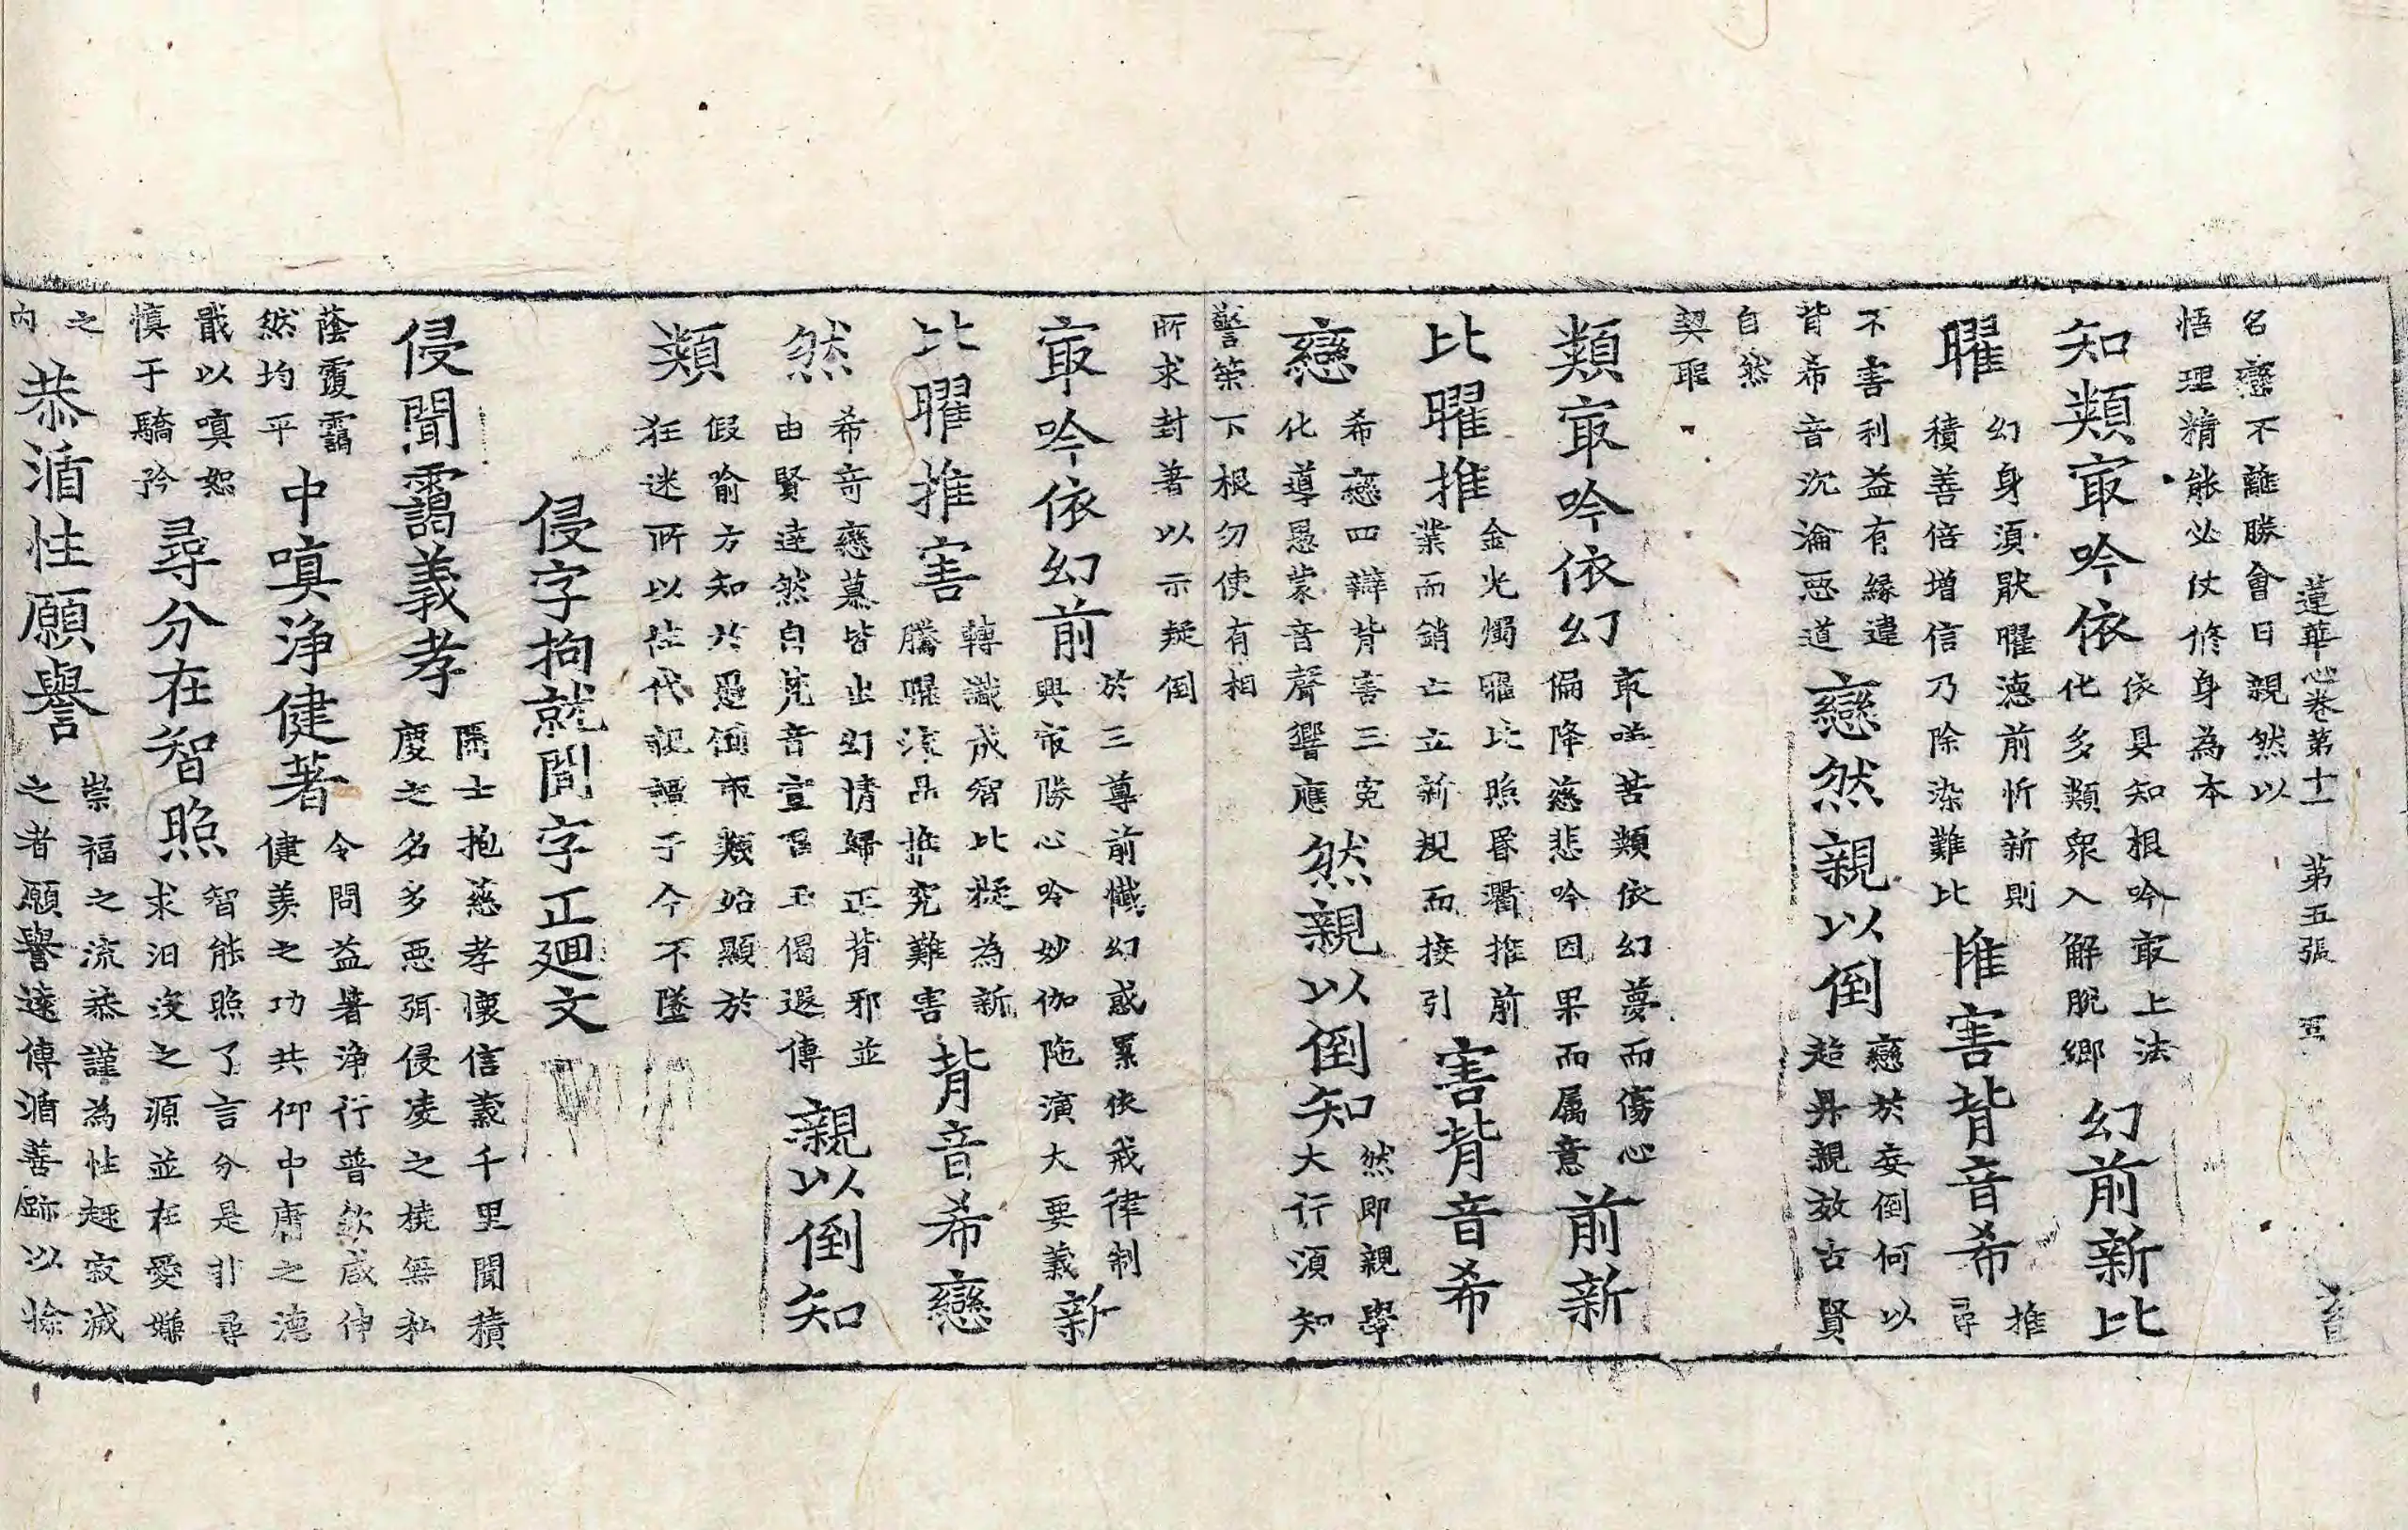 蓮華心卷第十一 第五張
名戀不離勝會日親然以
悟理精能必仗修身為本
知類㝡吟依
依具知根吟㝡上法
化多類衆入解脫鄉
幻前新比
曜
幻身須耿曜德前忻新則
積善倍增信乃除染難比
推害背音希
推
尋
不害利益有緣違
背希音沉淪惡道
戀然親以倒
戀於妄倒何以
超昇親效古賢
自然
契聖
類㝡吟依幻
㝡嗟苦類依幻夢而傷心
偏降慈悲吟因果而属意
前新
比曜推
金光燭曜比照昏衢推前
業而銷亡立新規而接引
害背音希
戀
希戀四辯背害三寃
化導愚蒙音聲響應
然親以倒知
然即親學
大行須知
警策下根勿使有相
所求封著以示疑倒
㝡吟依幻前
於三尊前懺幻惑累依戒律制
興㝡勝心吟妙伽陁演大要義
新
比曜推害
轉識成智比擬為新
騰曜法鼎推究難害
背音希戀
然
希奇戀慕皆出幻情歸正背邪並
由賢達然自梵音宣吾玉偈遐傳
親以倒知
類
假喻方知於愚倒而類始顯於
狂迷所以性代祖禋于今不墜
侵字拘就聞字正廻文
侵聞靄義孝
隱士抱慈孝懷信義千里聞積
慶之名多惡弭侵凌之撓無私
蔭覆靄
然均平
中嗔淨健著
令問益著淨行普欽咸伸
健羨之功共仰中庸之德
戢以嗔恕
慎于驕矜
尋分在智照
智能照了言分是非尋
求汩沒之源並在愛嫌
之
內
恭循性願譽
崇福之流恭謹為性趣寂滅
之者願譽遠傳循善跡以除